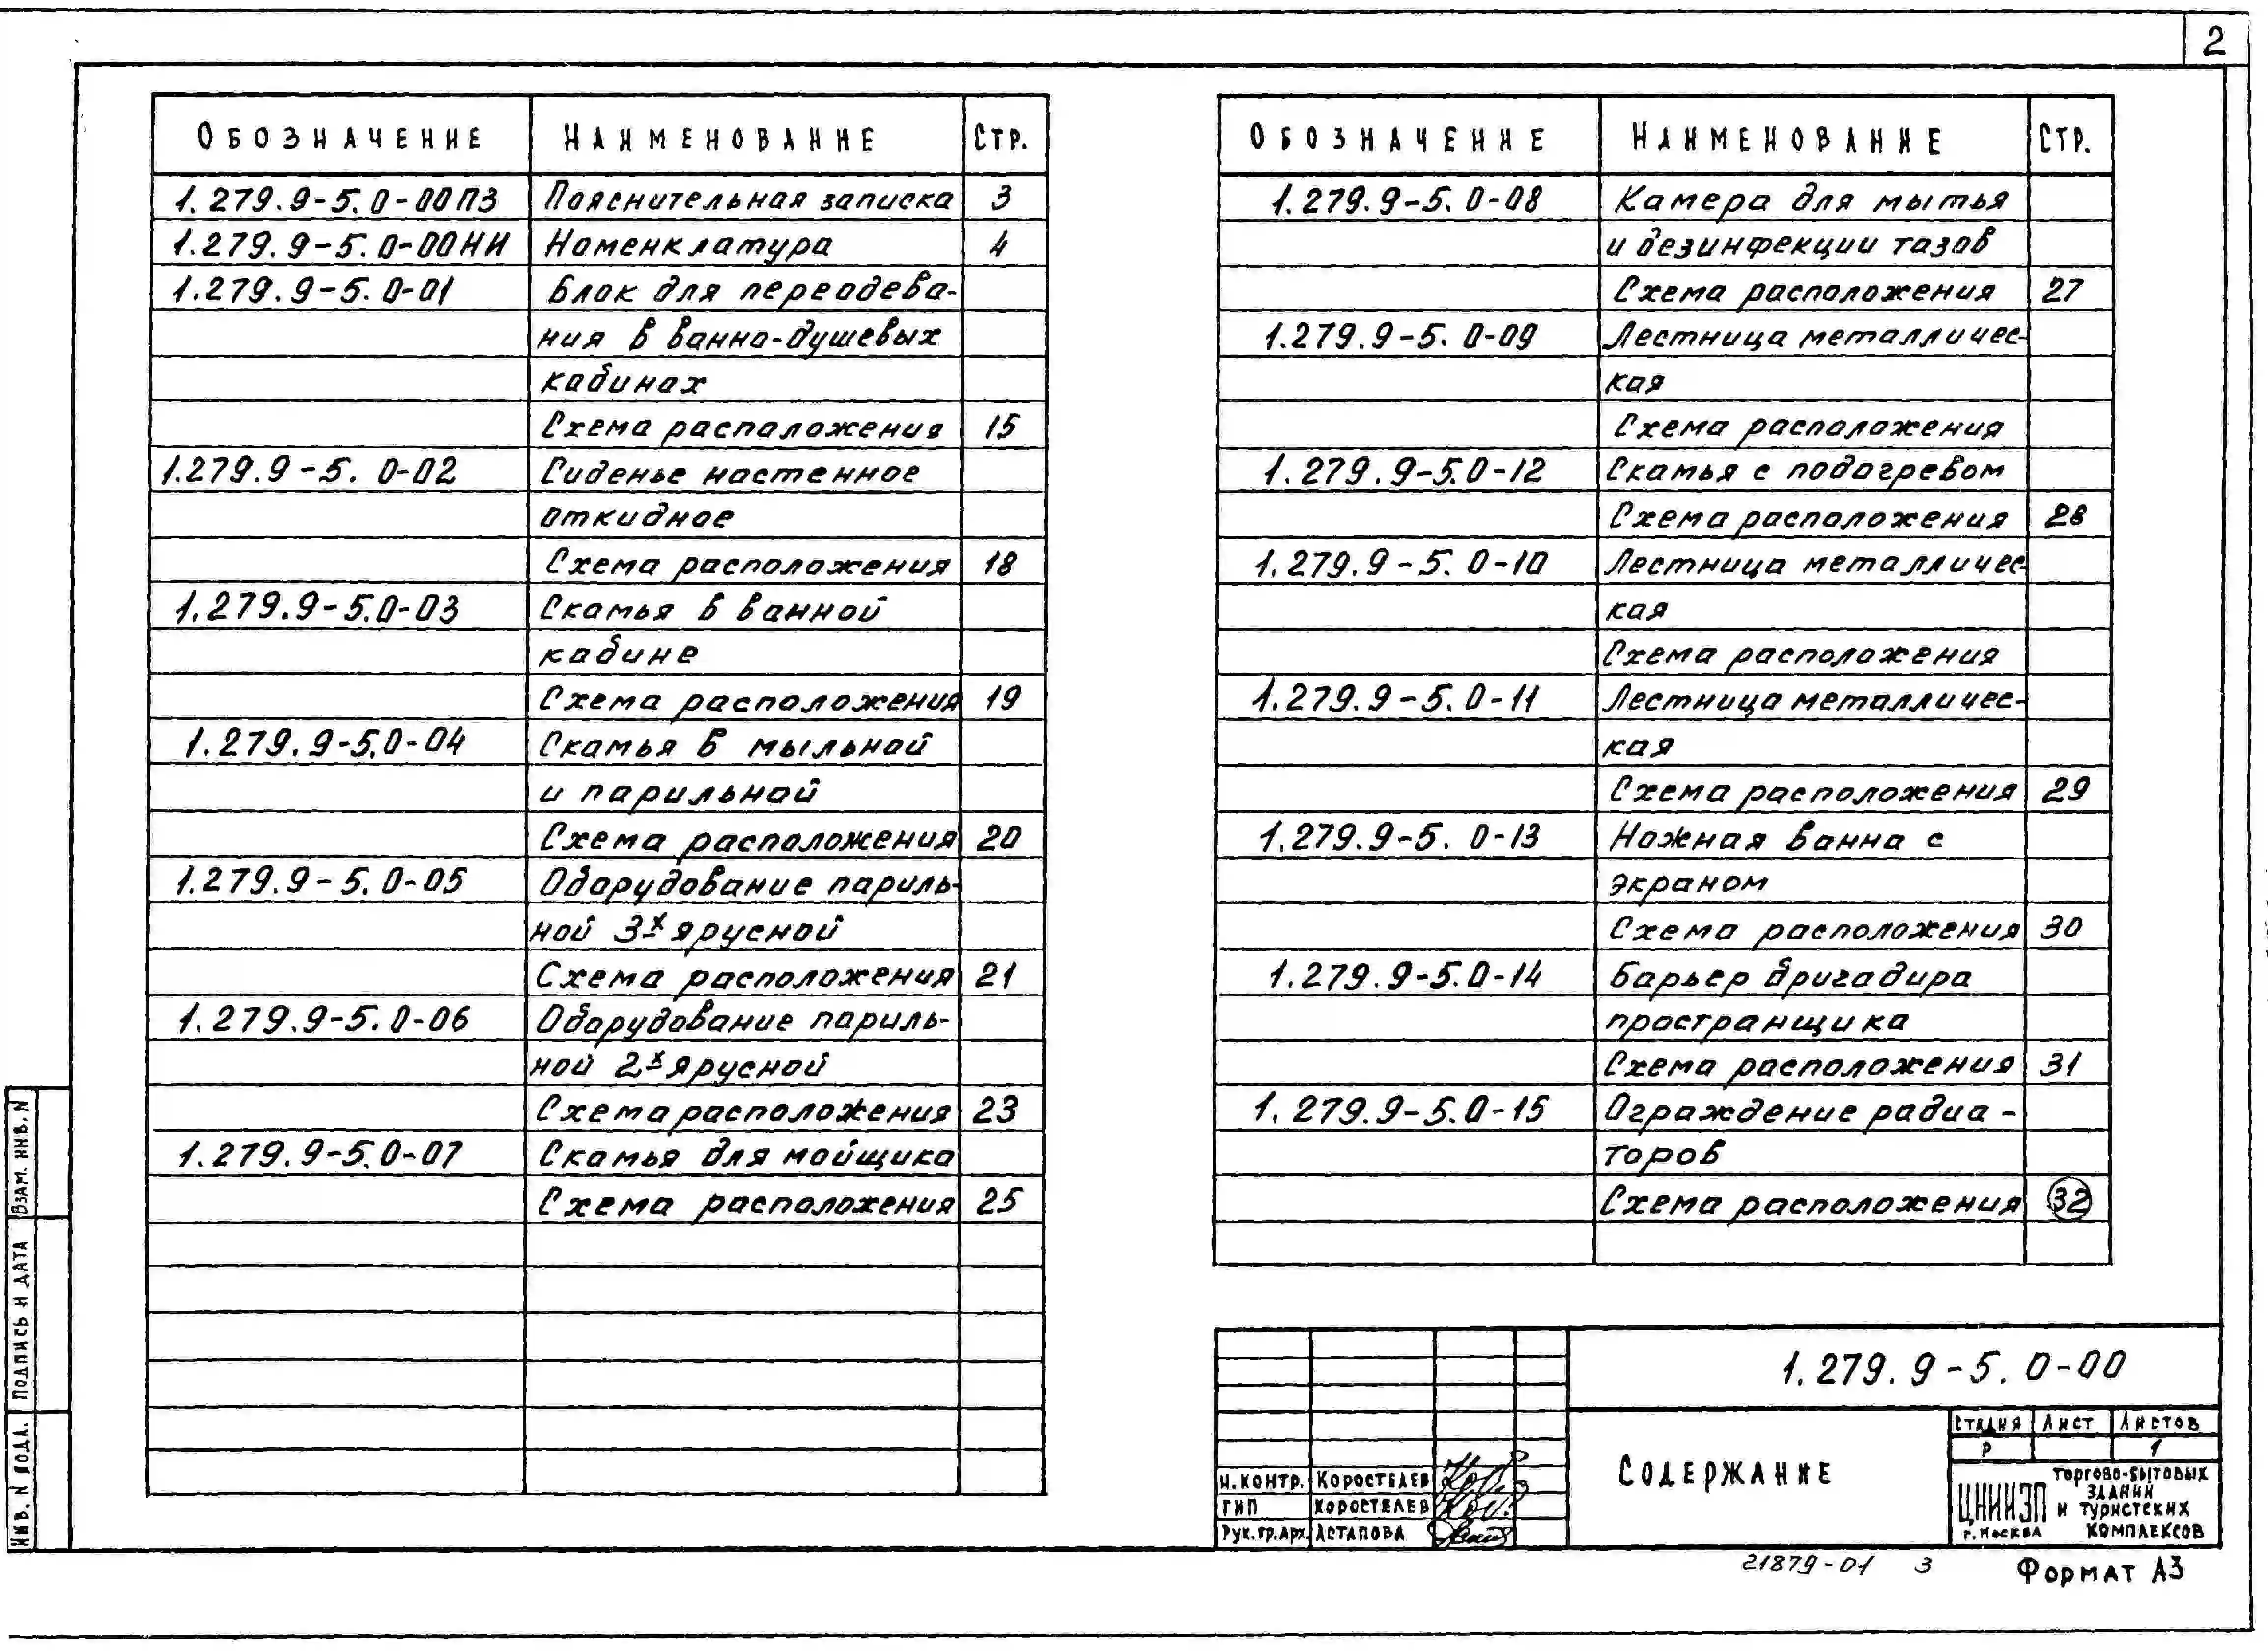 2
Обозначение Наименование Стр.
1.279.9-5.0-00ПЗ Пояснительная записка 3
1.279.9-5.0-00НИ Номенклатура 4
1.279.9-5.0-01 Блок для переодева-
ния в ванно-душевых
кабинах
Схема расположения 15
1.279.9-5.0-02 Сиденье настенное
откидное
Схема расположения 18
1.279.9-5.0-03 Скамья в ванной
кабине
Схема расположения 19
1.279.9-5.0-04 Скамья в мыльной
и парильной
Схема расположения 20
1.279.9-5.0-05 Оборудование париль-
ной 3х ярусной
Схема расположения 21
1.279.9-5.0-06 Оборудование париль-
ной 2х ярусной
Схема расположения 23
1.279.9-5.0-07 Скамья для мойщика
Схема расположения 25
Обозначение Наименование Стр.
1.279.9-5.0-08 Камера для мытья
и дезинфекции тазов
Схема расположения 27
1.279.9-5.0-09 Лестница металличес-
кая
Схема расположения
1.279.9-5.0-12 Скамья с подогревом
Схема расположения 28
1.279.9-5.0-10 Лестница металличес-
кая
Схема расположения
1.279.9-5.0-11 Лестница металличес-
кая
Схема расположения 29
1.279.9-5.0-13 Ножная ванна с
экраном
Схема расположения 30
1.279.9-5.0-14 Барьер бригадира
пространщика
Схема расположения 31
1.279.9-5.0-15 Ограждение радиа-
торов
Схема расположения 32
1.279.9-5.0-00
Содержание
Стадия Лист Листов
Р 1
Н.контр. Коростелев
ГИП Коростелев
Рук.гр.арх. Астапова
ЦНИИЭП торгово-бытовых
зданий
и туристских
г. Москва комплексов
21879-01 3
Формат А3
Взам. инв. N
Подпись и дата
Инв. N подл.